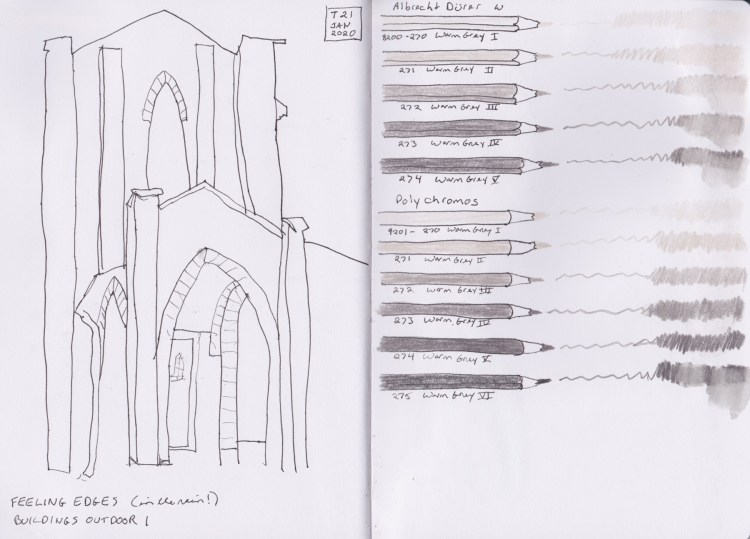 T21
JAN
2020
FEELING EDGES (in the rain!)
BUILDINGS OUTDOOR 1
Albrecht Dürer W
8200-270 Warm Grey I
271 Warm Grey II
272 Warm Grey III
273 Warm Grey IV
274 Warm Grey V
Polychromos
9201-270 Warm Grey I
271 Warm Grey II
272 Warm Grey III
273 Warm Grey IV
274 Warm Grey V
275 Warm Grey VI